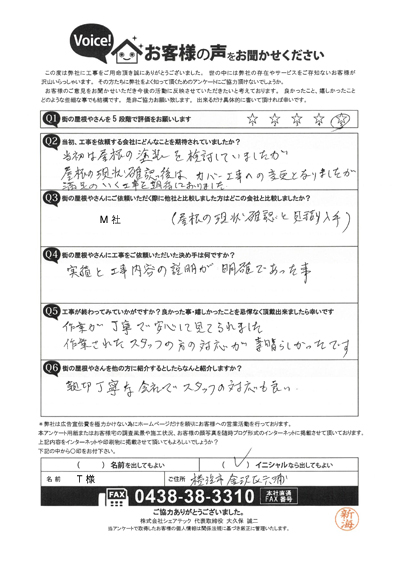 Voice!
お客様の声をお聞かせください
この度は弊社に工事をご用命頂き誠にありがとうございました。世の中には弊社の存在やサービスをご存知ないお客様が
沢山いらっしゃいます。その方たちに弊社をよく知って頂くためのアンケートにご協力頂けないでしょうか。
お客様のご意見をお聞かせいただき今後の活動に反映させていただきたいと考えております。良かったこと、嬉しかったこと
どのような些細な事でも結構です。是非ご協力お願い致します。出来るだけ具体的に書いて頂ければ幸いです。
Q1 街の屋根やさんを5段階で評価をお願いします ☆ ☆ ☆ ☆ ☆
Q2 当初、工事を依頼する会社にどんなことを期待されていましたか？
当初は屋根の塗装を検討していましたが
屋根の現状確認後は、カバー工事への変更となりましたが
Q3 街の屋根やさんにご依頼いただく際に他社と比較しました方はどこの会社と比較しましたか？
M社 (屋根の現状確認と見積り入手)
Q4 街の屋根やさんにご依頼いただいた決め手は何ですか？
実績と工事内容の説明が明確であった事
Q5 工事が終わってみていかがですか？良かった事・嬉しかったことを忌憚なく頂戴出来ましたら幸いです
作業が丁寧で安心して見てられました
作業されたスタッフの方の対応が素晴らしかったです
Q6 街の屋根やさんを他の方に紹介するとしたらなんと紹介しますか？
親切丁寧な会社でスタッフの対応も良い.
＊弊社は広告宣伝費を極力かけない為にホームページだけを頼りにお客様への営業活動を行っております。
本アンケート用紙またはお客様宅の調査風景や施工状況、お客様の顔写真を随時ブログ形式のインターネットに掲載させて頂いております。
上記内容をインターネットや印刷物に掲載させて頂いてもよろしいでしょうか？
下記の中から○印をお付下さい。
( ) 名前を出してもよい ( ✓ ) イニシャルなら出してもよい
名前 T 様 ご住所 横浜市金沢区六浦
FAX 0438-38-3310 本社直通 FAX番号
ご協力ありがとうございました。
株式会社シェアテック 代表取締役 大久保 誠二
当アンケートで取得したお客様の個人情報は関係法規に基づき厳正に管理いたします。
新海